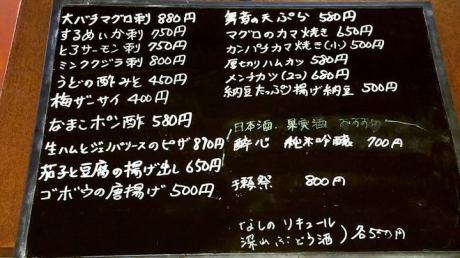 大バラマグロ刺 880円
するめいか刺 750円
とろサーモン刺 750円
ミンククジラ刺 800円
うどの酢みそ 450円
梅ザーサイ 400円
なまこポン酢 580円
生ハムとジェノバソースのピザ 870円
茄子と豆腐の揚げ出し 650円
ゴボウの唐揚げ 500円
舞茸の天ぷら 580円
マグロのカマ焼き 650円
カンパチカマ焼き(小) 500円
厚切りハムカツ 580円
メンチカツ(2コ) 680円
納豆たっぷり揚げ納豆 500円
日本酒、果実酒 おすすめ
酔心 純米吟醸 700円
獺祭 800円
なしのリキュール
深山ぶどう酒 )各550円